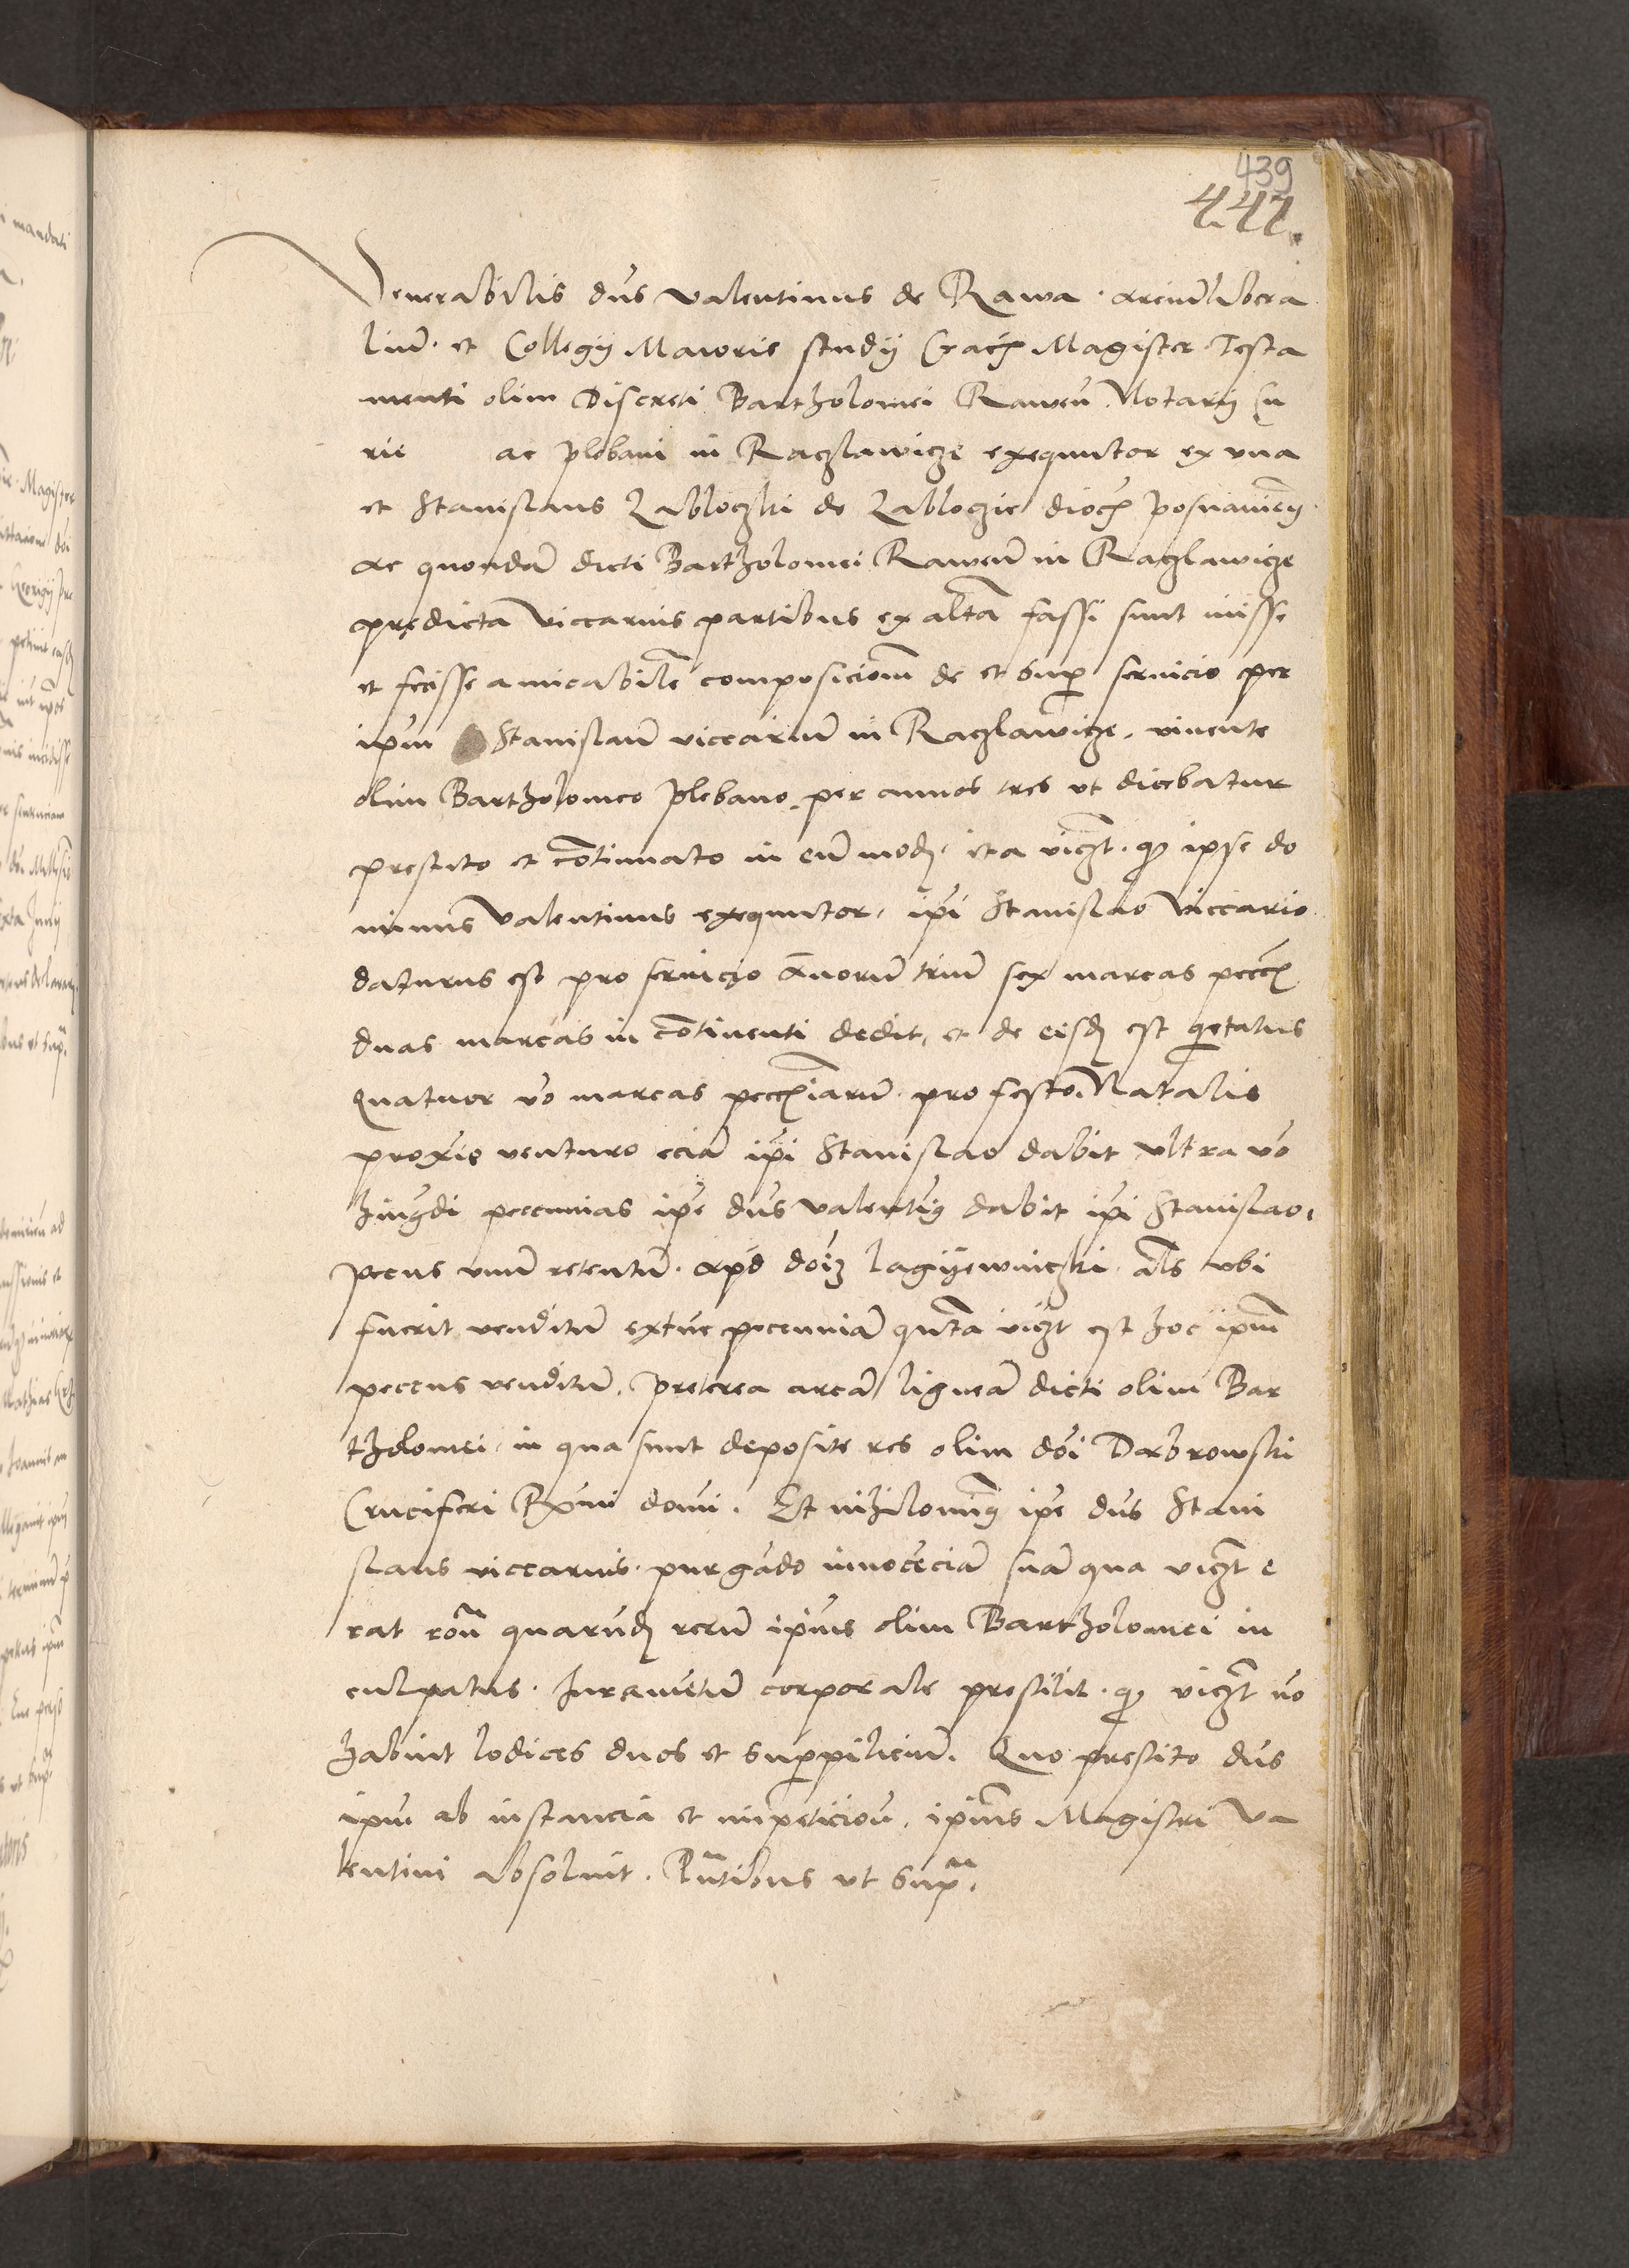 439
447.
Venerabilis dns Valentinus de Rawa · arciu libera
liu · et Collegy Maioris studij Crac Magister Testa
menti olim Discreti Bartholomei Rawen Notarij Cu
rie ac plebani in Raczlawicze exequutor ex vna
et Stanislaus Zabloczki de Zabloczie dioc posnanien
ac quonda dicti Bartholomei Rawen in Raczlawicze
predicta Viccarius partibus ex alta fassi sunt inisse
et fecisse amicabile composicionem de et sup seruicio per
ipm Stanislau viccariu in Raczlawicze, viuente
olim Bartholomeo plebano per annos tres vt dicebatur
prestito et cotinuato in eu mod, ita viczt · q ipse do
minus Valentinus exequutor, ipi Stanislao Viccario
daturus est pro seruicio anoru triu sex marcas pecc
duas marcas in cotinenti dedit, et de eisd est quetatus
Quatuor vo marcas pecciaru · pro festo Natalis
proxie venturo ecia ipi Stanislao dabit vltra vo
hmgdi peccunias ipe dns Valentinus dabit ipi Stanislao,
pecus vnu retentu · apd doiz lagijewniczki als vbi
fuerit venditu extuc peccunia quta viczt est hoc ipm
peccus venditu, preterea arca lignea dicti olim Bar
tholomei, in qua sunt deposite res olim doi Dabrowski
Cruciferi Rxmi domi. Et nihilomin ipe dns Stani
slaus viccarius · purgado innocecia sua qua viczt e
rat ron quarud reru ipius olim Bartholomei in
culpatus · Iurametu corporale prestitit · q viczt no
habuit lodices duos et suppiliciu. Quo prestito dns
ipm ab instancia et impeticion, ipius Magistri Va
lentini absoluit. Pntibus vt sup.